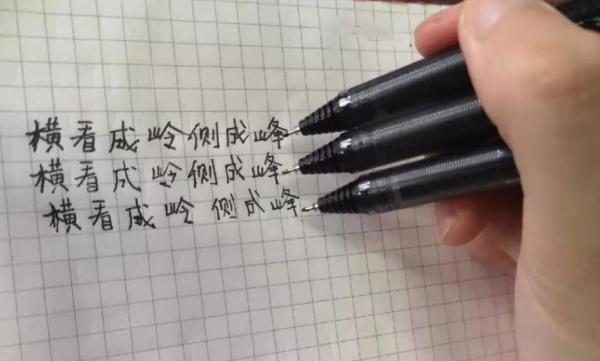 横看成岭侧成峰
横看成岭侧成峰
横看成岭侧成峰